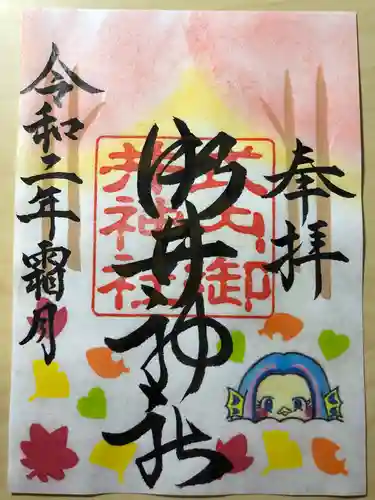 奉拝
御井神社
武山御
井神社
令和二年霜月